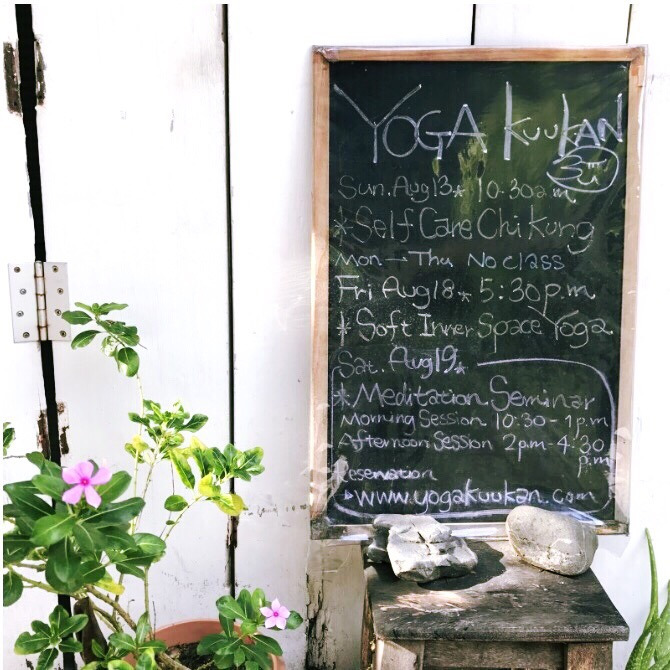 YOGA KUUKAN
Sun. Aug 13* 10:30a.m.
*Self Care Chi Kung
Mon → Thu No class
Fri Aug 18* 5:30p.m.
* Soft Inner Space Yoga
Sat. Aug 19*
*Meditation Seminar
Morning Session 10:30-1p.m
Afternoon Session 2pm-4:30
p.m
Reservation
www.yogakuukan.com